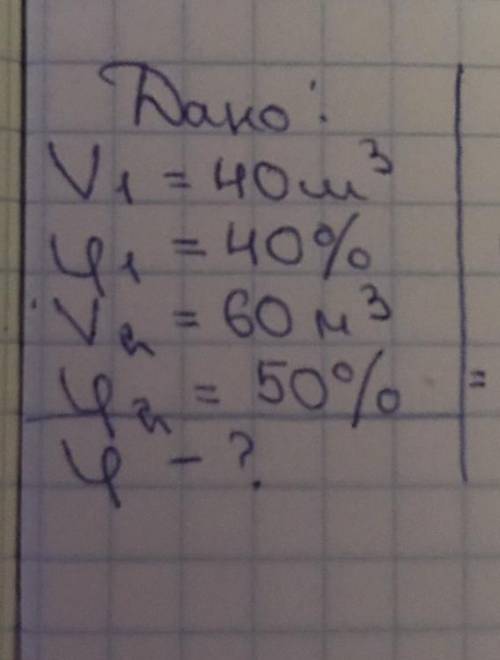 Дано:
V₁ = 40 м³
φ₁ = 40%
V₂ = 60 м³
φ₂ = 50%
φ - ?
=